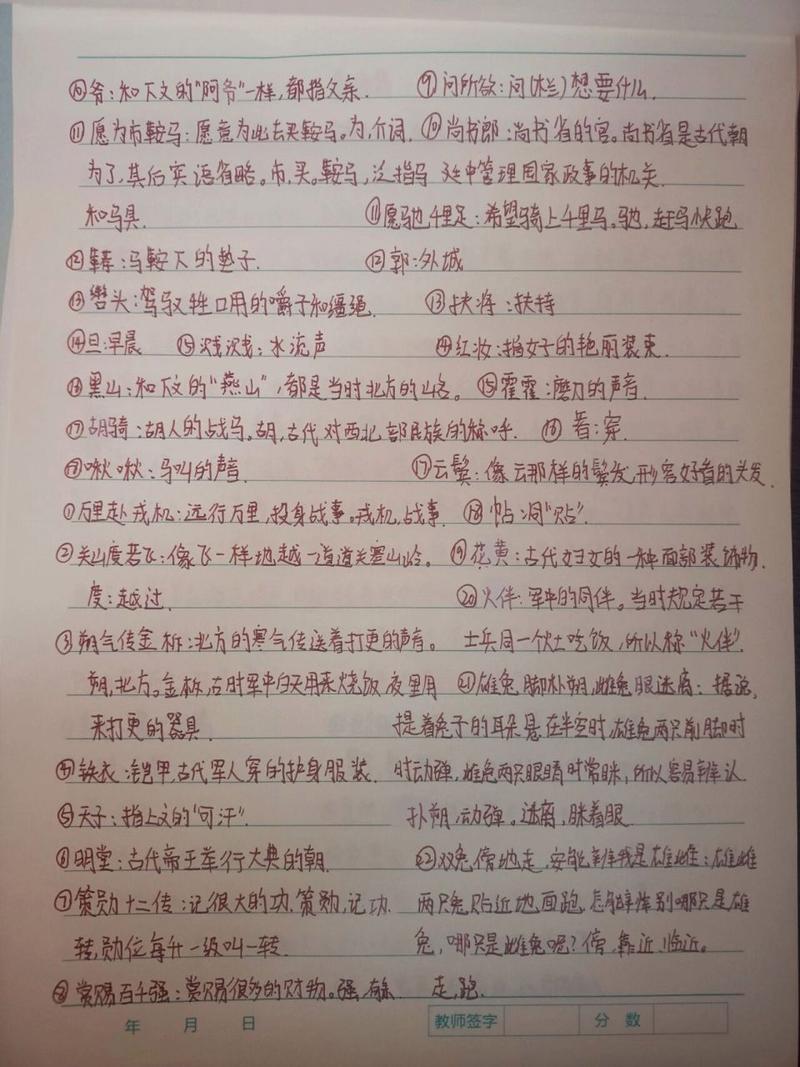 ⑩爷:和下文的"阿爷"一样,都指父亲. ⑨问所欲:问(木兰)想要什么.
⑪愿为市鞍马:愿意为此去买鞍马。为,介词. ⑩尚书郎:尚书省的官。尚书省是古代朝
为了,其后宾语省略。市,买。鞍马,泛指马 廷中管理国家政事的机关.
和马具. ⑪愿驰千里足:希望骑上千里马。驰,赶马快跑
⑫鞯:马鞍下的垫子. ⑫郭:外城
⑬辔头:驾驭牲口用的嚼子和缰绳. ⑬扶将:扶持
⑭旦:早晨 ⑮溅溅:水流声 ⑭红妆:指女子的艳丽装束.
⑯黑山:和下文的"燕山",都是当时北方的山名。 ⑮霍霍:磨刀的声音.
⑰胡骑:胡人的战马。胡,古代对西北部民族的称呼. ⑯着:穿.
⑱啾啾:马叫的声音 ⑰云鬓:像云那样的鬓发,形容好看的头发.
①万里赴戎机:远行万里,投身战事。戎机,战事. ⑱帖:同"贴".
②关山度若飞:像飞一样地越一道道关塞山岭。 ⑲花黄:古代妇女的一种面部装饰物.
度:越过. ⑳火伴:军中的同伴。当时规定若干
③朔气传金柝:北方的寒气传送着打更的声音。 士兵同一个灶吃饭,所以称"火伴".
朔,北方。金柝,古时军中白天用来烧饭,夜里用 ㉑雄兔脚朴朔,雌兔眼迷离:据说,
来打更的器具. 提着兔子的耳朵悬在半空时,雄兔两只前脚时
④铁衣:铠甲,古代军人穿的护身服装. 时动弹,雌兔两只眼睛时常眯,所以容易辨认.
⑤天子:指上文的"可汗". 扑朔,动弹。迷离,眯着眼.
⑥明堂:古代帝王举行大典的朝. ㉒双兔傍地走,安能辨我是雄雌:雄雌
⑦策勋十二传:记很大的功.策勋,记功. 两只兔贴近地面跑,怎能辨别哪只是雄
转,勋位每升一级叫一转. 兔,哪只是雌兔呢?傍,靠近,临近。
⑧赏赐百千强:赏赐很多的财物。强,有余. 走,跑.
年 月 日 教师签字 分数